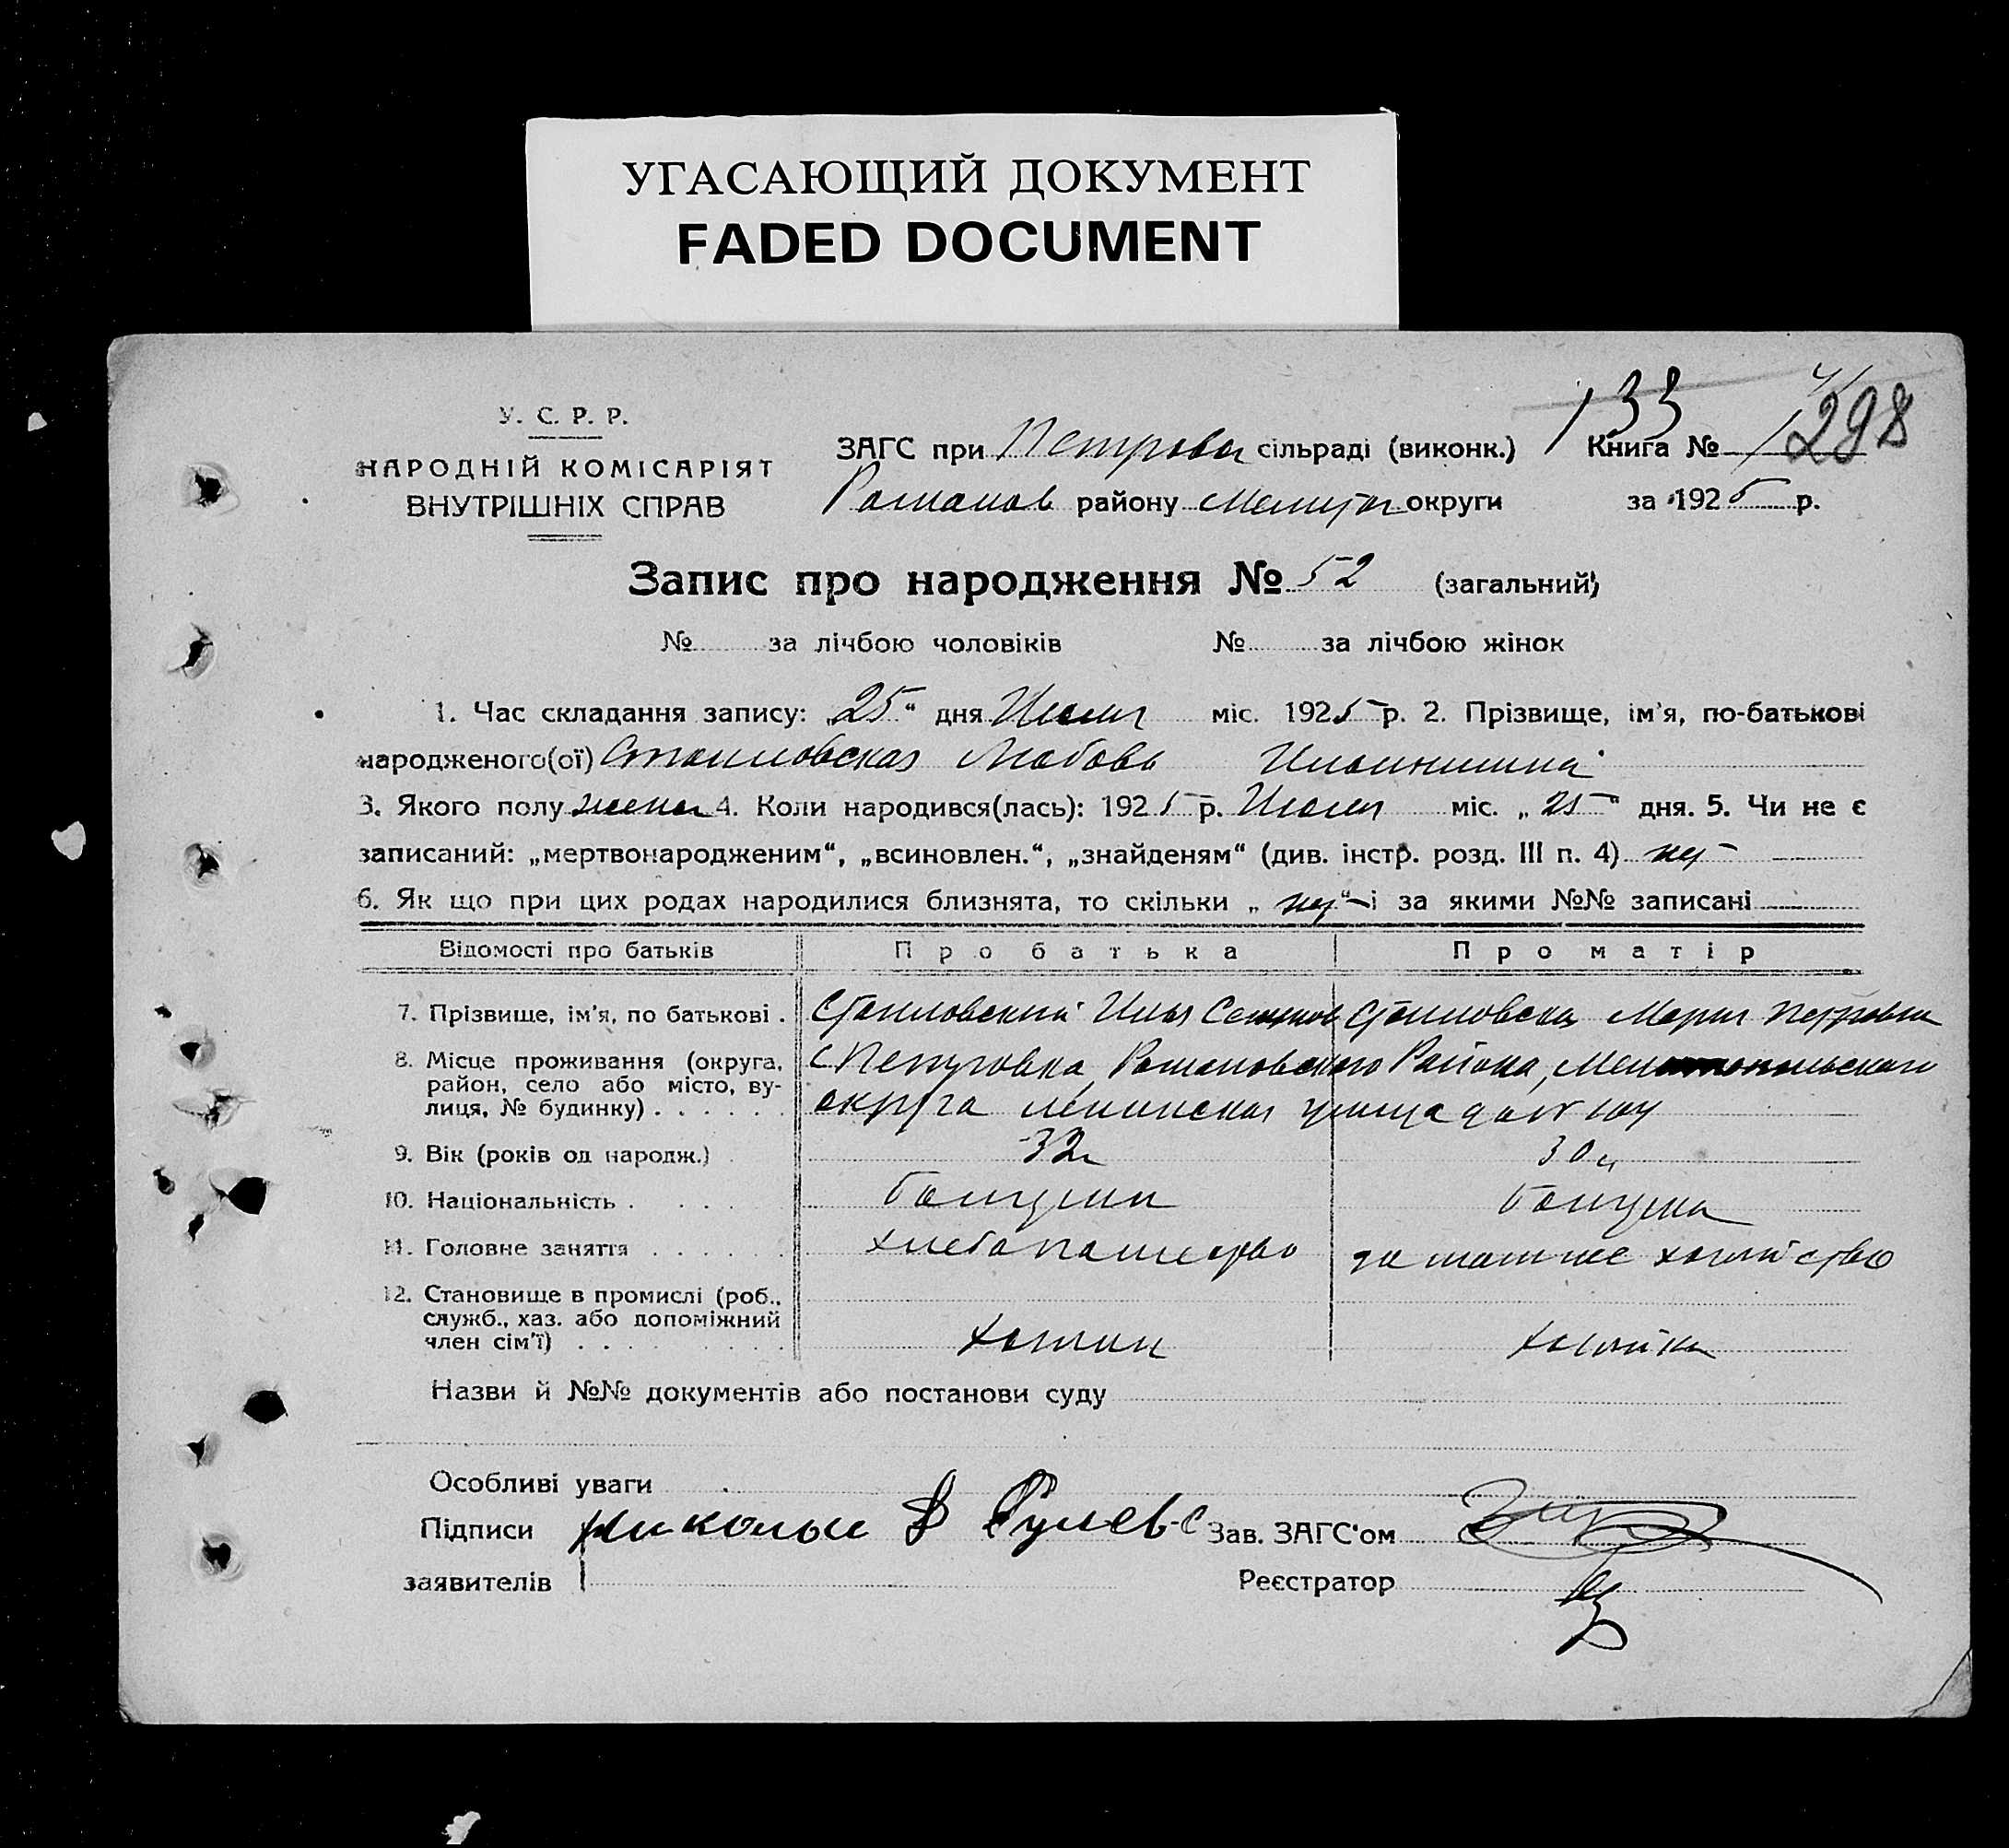 УГАСАЮЩИЙ ДОКУМЕНТ
FADED DOCUMENT
У. С. Р. Р.
НАРОДНІЙ КОМІСАРІЯТ
ВНУТРІШНІХ СПРАВ
133
ЗАГС при Петровск сільраді (виконк.) Книга № 298
Романов району Мелитоп округи за 1925 р.
Запис про народження № 52 (загальний)
№ за лічбою чоловіків № за лічбою жінок
1. Час складання запису: „25“ дня Июля міс. 1925 р. 2. Прізвище, ім'я, по-батькові
народженого(ої) Стоиловская Любовь Ильинишна
3. Якого полу женск 4. Коли народився(лась): 1925 р. Июля міс. „25“ дня. 5. Чи не є
записаний: „мертвонародженим“, „всиновлен.“, „знайденям“ (див. інстр. розд. III п. 4) нет
6. Як що при цих родах народилися близнята, то скільки „нет“ і за якими №№ записані
Відомості про батьків Про батька Про матір
7. Прізвище, ім'я, по батькові . Стоиловский Илья Стоиловская Мария Петровна
8. Місце проживання (округа, район, село або місто, вулиця, № будинку) . . . . . . с Петровка Романовского Района, Мелитопольского
округа Ленинская улица дом №
9. Вік (років од народж.) 32 30
10. Національність . . . . Болгарин Болгарка
11. Головне заняття . . . . . . хлебопашество домашнее хозяйство
12. Становище в промислі (роб., служб., хаз. або допоміжний член сім'ї) . . . . . хозяин хозяйка
Назви й №№ документів або постанови суду
Особливі уваги
Підписи Николай Гулев Зав. ЗАГС'ом
заявителів Реєстратор